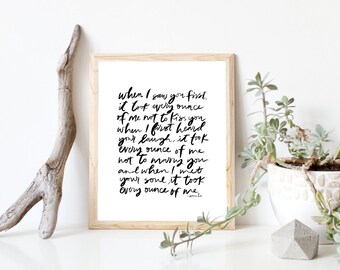 when I saw you first,
it took every ounce
of me not to kiss you
when I first heard
your laugh, it took
every ounce of me
not to marry you
and when I met
your soul, it took
every ounce of me.